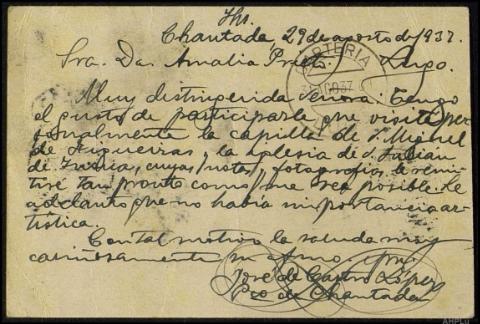 Jhs.
Chantada, 29 de agosto de 1937.
Sra. Da. Amalia Prieto. Lugo.
CARTERIA
Muy distinguida Señora: Tengo
el gusto de participarle que visité per
sonalmente la capilla de S. Miguel
de y la iglesia de S. Julian
de cuyas notas y fotografías le remi
tiré tan pronto como me sea posible. Le
adelanto que no había importancia ar-
tística.
Con tal motivo la saluda muy
cariñosamente su afmo.
José de Castro López
Pco de Chantada
AHPLu